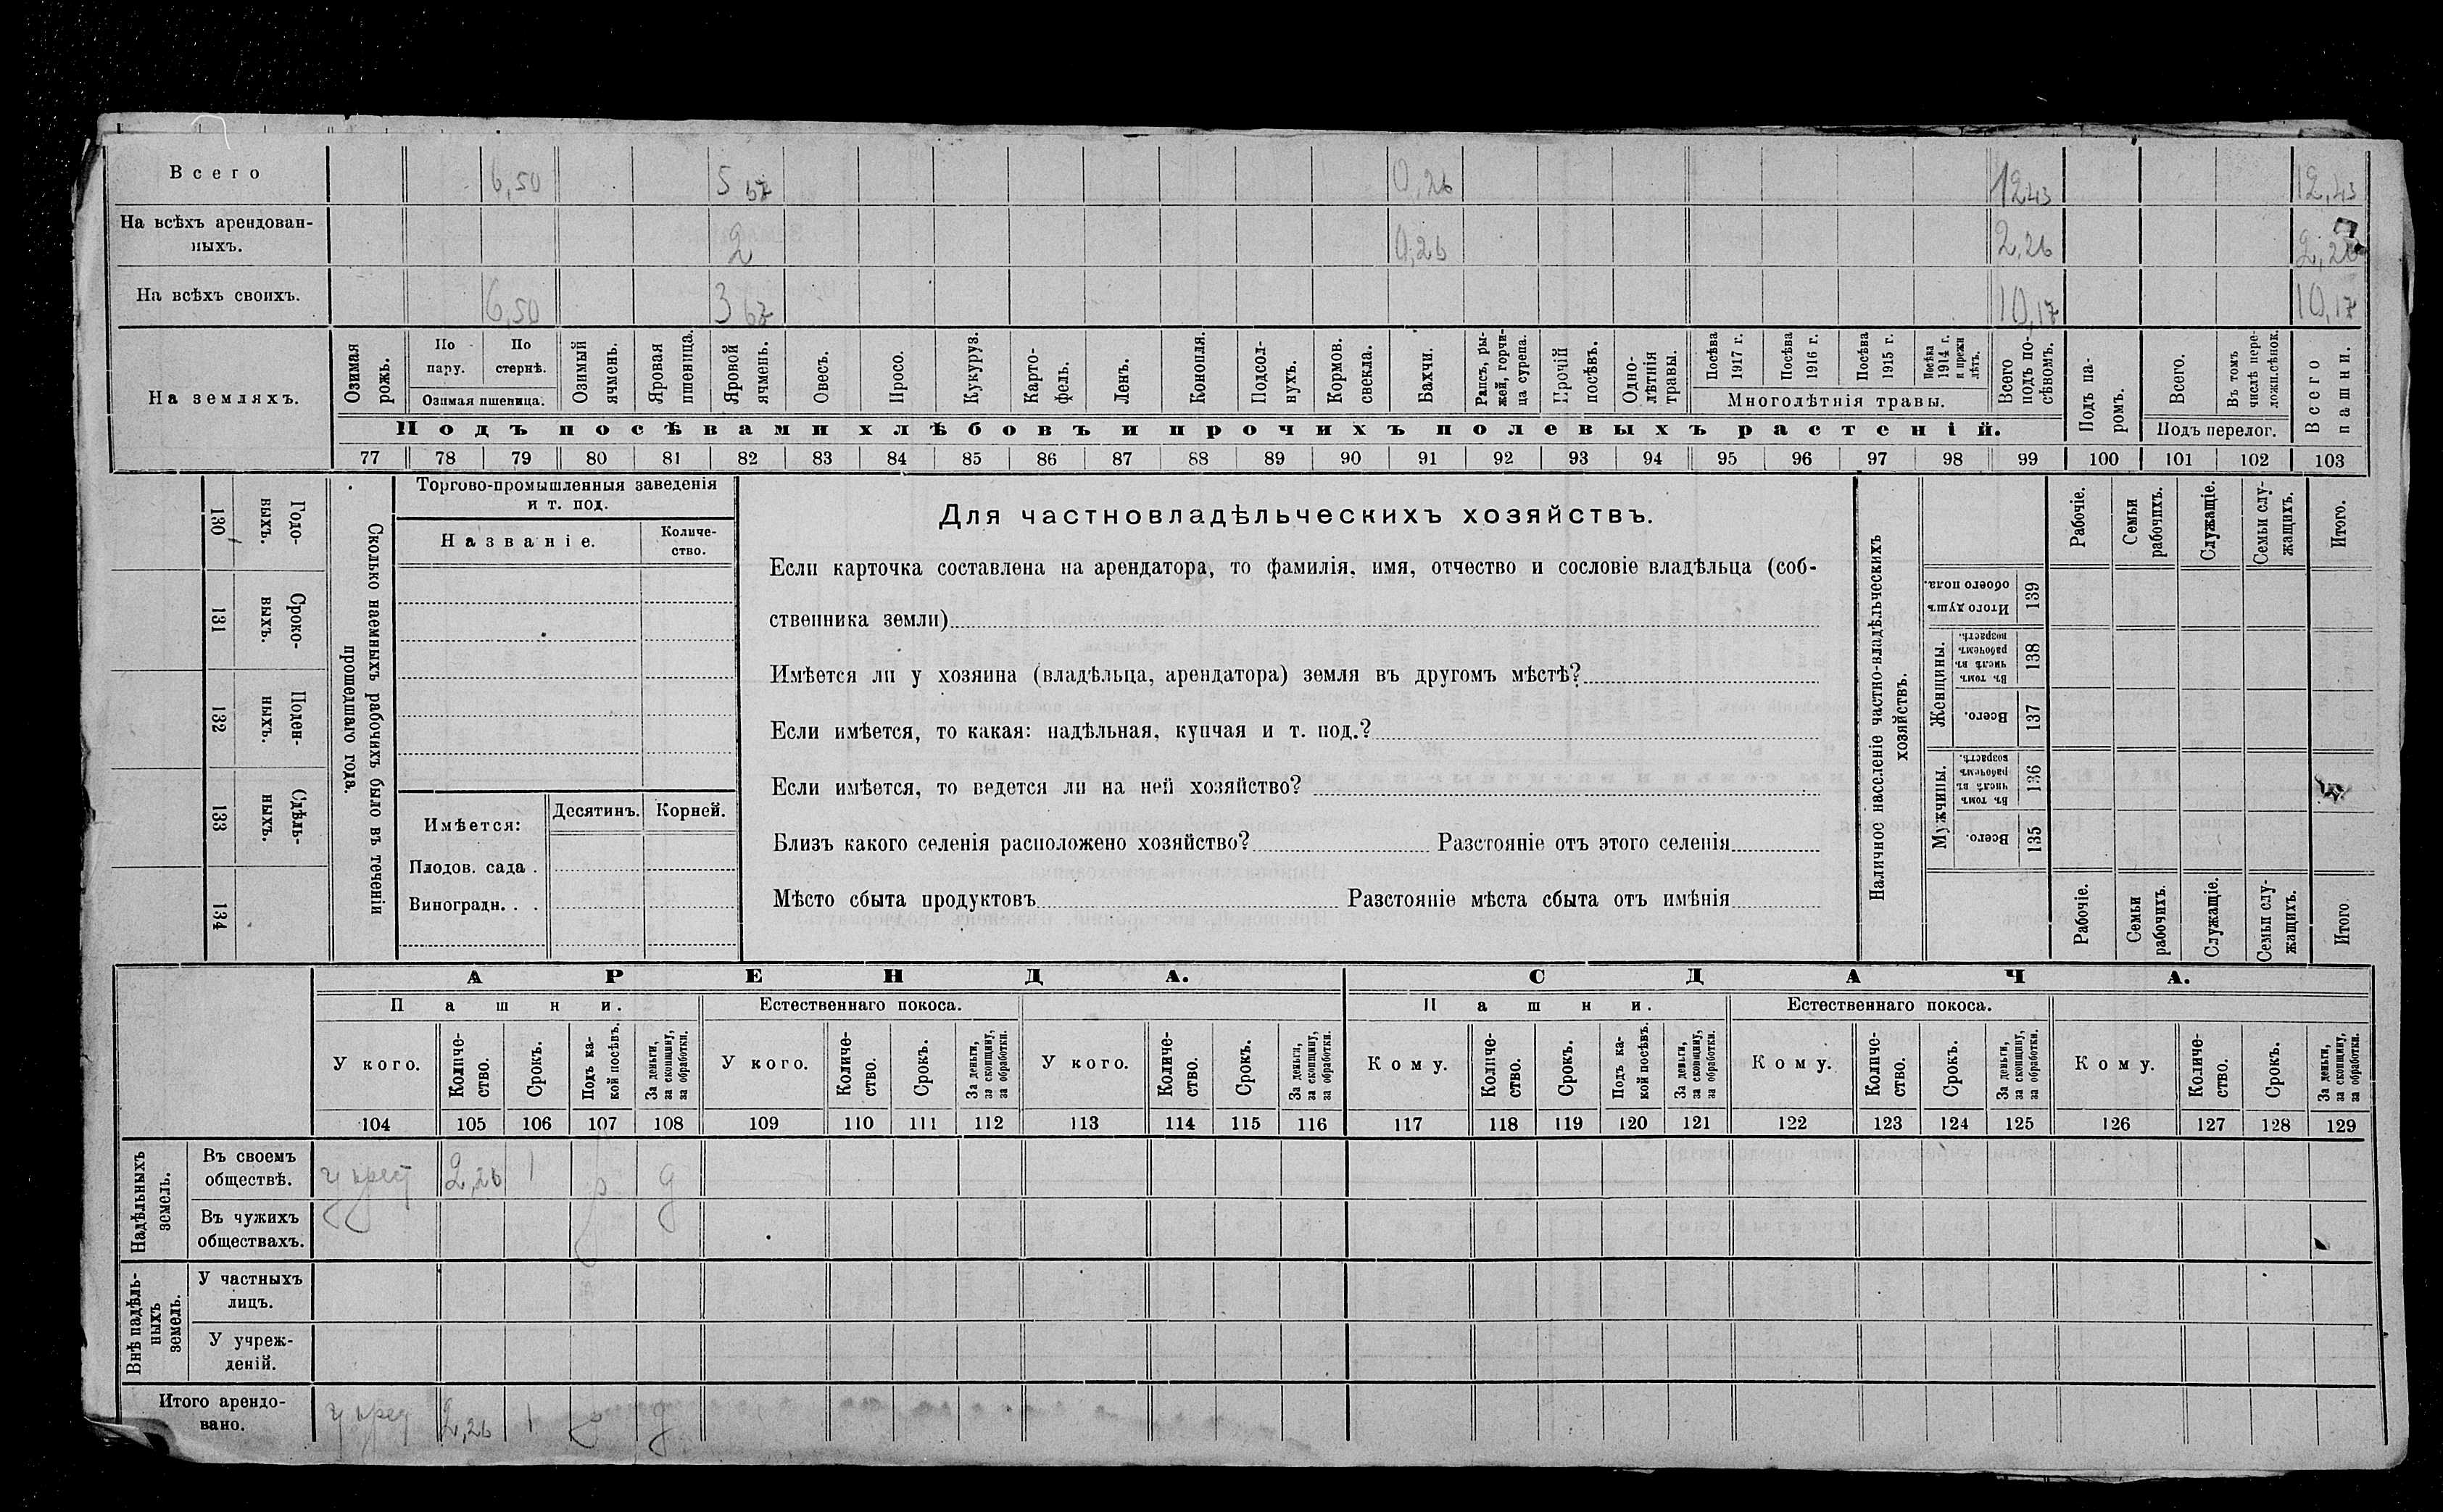 Всего 6,50 5 67 0,26 12 43 12,43
На всѣхъ арендован-
ныхъ. 2 0,26 2,26 2,26
На всѣхъ своихъ. 6,50 3 67 10,17 10,17
На земляхъ.
Озимая рожь.
По пару.
По стернѣ.
Озимая пшеница.
Озимый ячмень.
Яровая пшеница.
Яровой ячмень.
Овесъ.
Просо.
Кукуруз.
Карто-
фель.
Ленъ.
Конопля.
Подсол-
нухъ.
Кормов. свекла.
Бахчи.
Рапсъ, ры-
жей, горчи-
ца сурепа.
Прочій посѣвъ.
Одно-
лѣтнія травы.
Посѣва 1917 г.
Посѣва 1916 г.
Посѣва 1915 г.
Посѣва 1914 г. и прежн лѣтъ.
Многолѣтнія травы.
Всего подъ по-
сѣвомъ.
Подъ па-
ромъ.
Всего.
Въ томъ числѣ пере-
ложн.сѣнок.
Подъ перелог.
Всего пашни.
Подъ посѣвами хлѣбовъ и прочихъ полевыхъ растеній.
77 78 79 80 81 82 83 84 85 86 87 88 89 90 91 92 93 94 95 96 97 98 99 100 101 102 103
Годо-
выхъ.
130
Сроко-
выхъ.
131
Поден-
ныхъ.
132
Сдѣль-
ныхъ.
133
134
Сколько наемныхъ рабочихъ было въ теченіи
прошедшаго года.
Торгово-промышленныя заведенія
и т. под.
Названіе.
Количе-
ство.
Имѣется:
Десятинъ. Корней.
Плодов. сада .
Виноградн. . .
Для частновладѣльческихъ хозяйствъ.
Если карточка составлена на арендатора, то фамилія, имя, отчество и сословіе владѣльца (соб-
ственника земли)
Имѣется ли у хозяина (владѣльца, арендатора) земля въ другомъ мѣстѣ?
Если имѣется, то какая: надѣльная, купчая и т. под.?
Если имѣется, то ведется ли на ней хозяйство?
Близъ какого селенія расположено хозяйство? Разстояніе отъ этого селенія
Мѣсто сбыта продуктовъ Разстояніе мѣста сбыта отъ имѣнія
Наличное населеніе частно-владѣльческихъ
хозяйствъ.
Рабочіе.
Семьи рабочихъ.
Служащіе.
Семьи слу-
жащихъ.
Итого.
Итого душъ обоего пола. 139
Женщины.
Въ томъ числѣ въ рабочемъ возрастѣ. 138
Всего. 137
Мужчины.
Въ томъ числѣ въ рабочемъ возрастѣ. 136
Всего. 135
Рабочіе.
Семьи рабочихъ.
Служащіе.
Семьи слу-
жащихъ.
Итого
АРЕНДА. СДАЧА.
Пашни. Естественнаго покоса. Пашни. Естественнаго покоса.
У кого.
Количе-
ство.
Срокъ.
Подъ ка-
кой посѣвъ.
За деньги, за скопщину, за обработки.
У кого.
Количе-
ство.
Срокъ.
За деньги, за скопщину, за обработки.
У кого.
Количе-
ство.
Срокъ.
За деньги, за скопщину, за обработки.
Кому.
Количе-
ство.
Срокъ.
Подъ ка-
кой посѣвъ.
За деньги, за скопщину, за обработки.
Кому.
Количе-
ство.
Срокъ.
За деньги, за скопщину, за обработки.
Кому.
Количе-
ство.
Срокъ.
За деньги, за скопщину, за обработки.
104 105 106 107 108 109 110 111 112 113 114 115 116 117 118 119 120 121 122 123 124 125 126 127 128 129
Надѣльныхъ
земель.
Въ своемъ
обществѣ. у крест 2,26 1 д
Въ чужихъ
обществахъ.
Внѣ надѣль-
ныхъ
земель.
У частныхъ
лицъ.
У учреж-
деній.
Итого арендо-
вано. 2,26 1 д